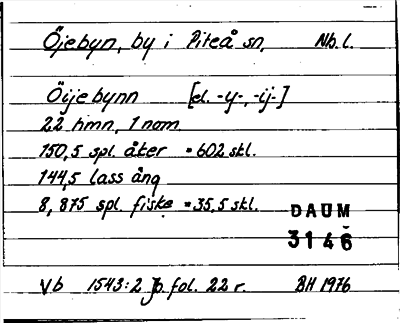 Öjebyn, by i Piteå sn, Nb. l.
Öijebynn [el. -y-, -ij-]
22 hmn, 1 nom
150,5 spl. åker = 602 skl.
144,5 lass äng
8,875 spl. fiske = 35,5 skl.
DAUM
3146
Vb 1543:2 Jb. fol. 22 r. BH 1976